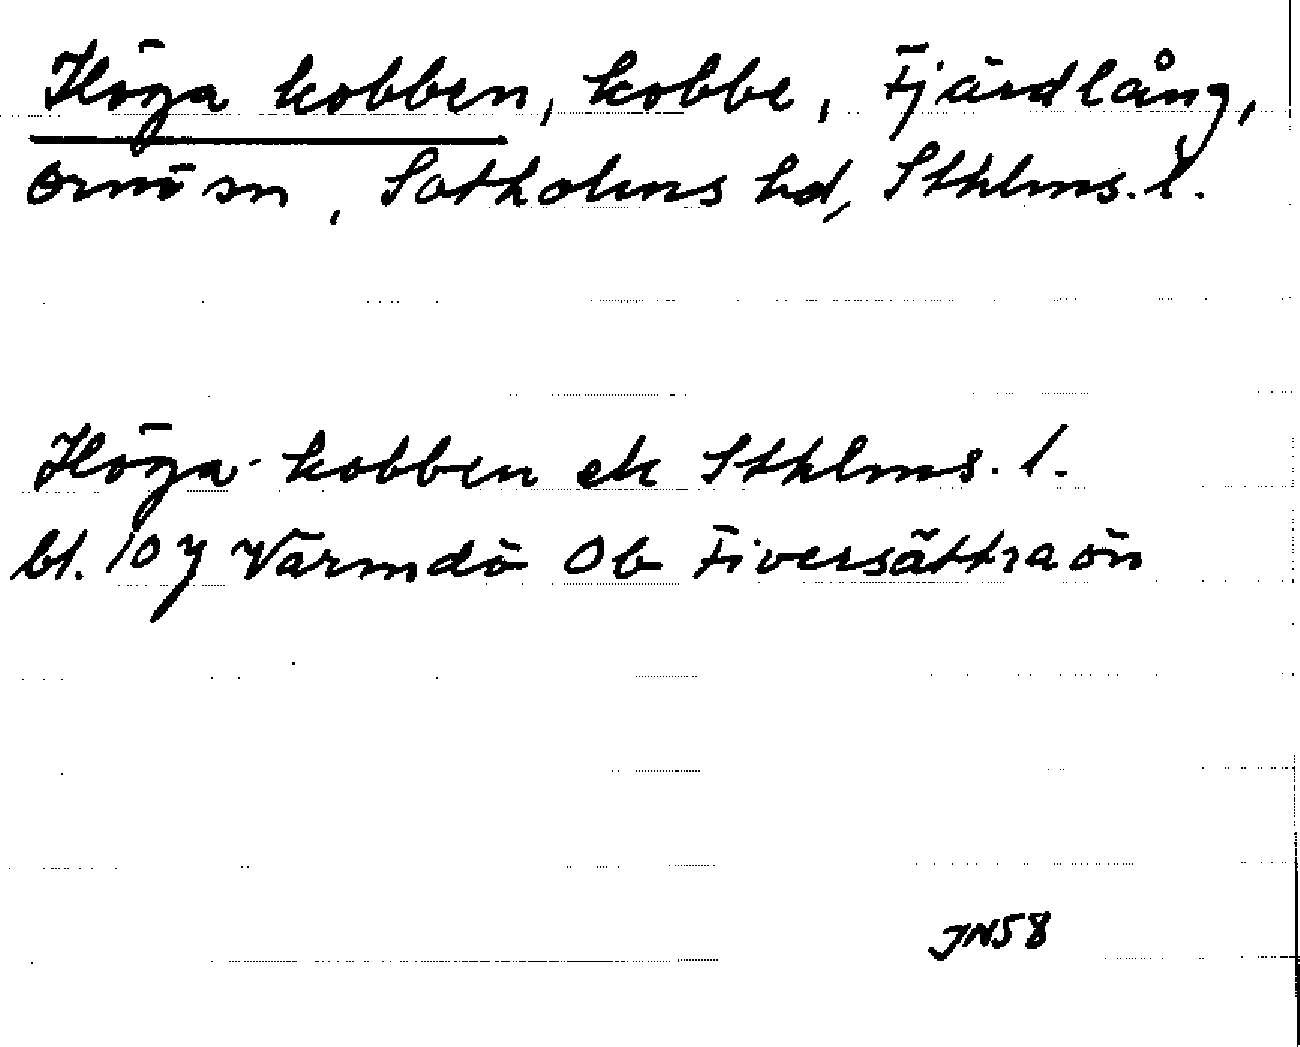 Höga kobben, kobbe, Fjärdlång,
Ornö sn, Sotholms hd, Sthlms. l.
Höga-kobben ek Sthlms. l.
bl. 107 Värmdö Ob Fiversättraön
JN58